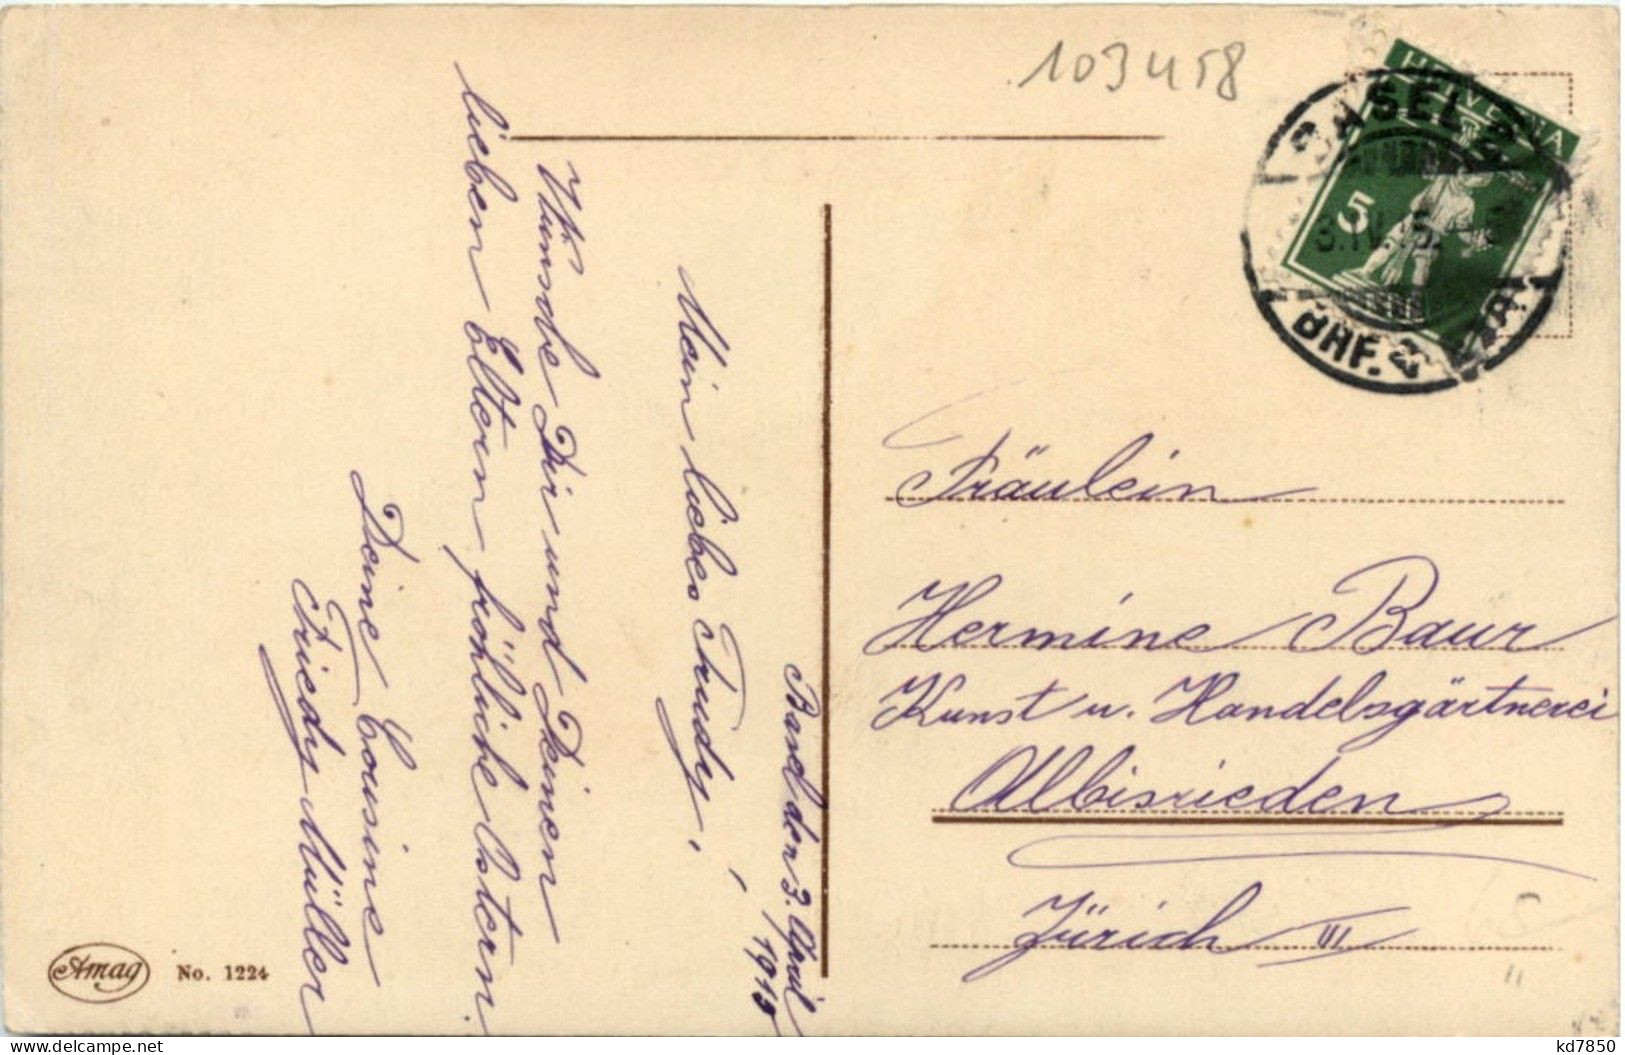 103458
HELVETIA
5
BASEL 2
3.IV.15.
BHF.
Basel den 3. April
1915
Mein liebes Trudy,
Wünsche Dir und Deinen
lieben Eltern fröhliche Ostern.
Deine Cousine
Friedy Müller
Fräulein
Hermine Baur
Kunst u. Handelsgärtnerei
Albisrieden
Zürich III
Amag No. 1224
kd7850